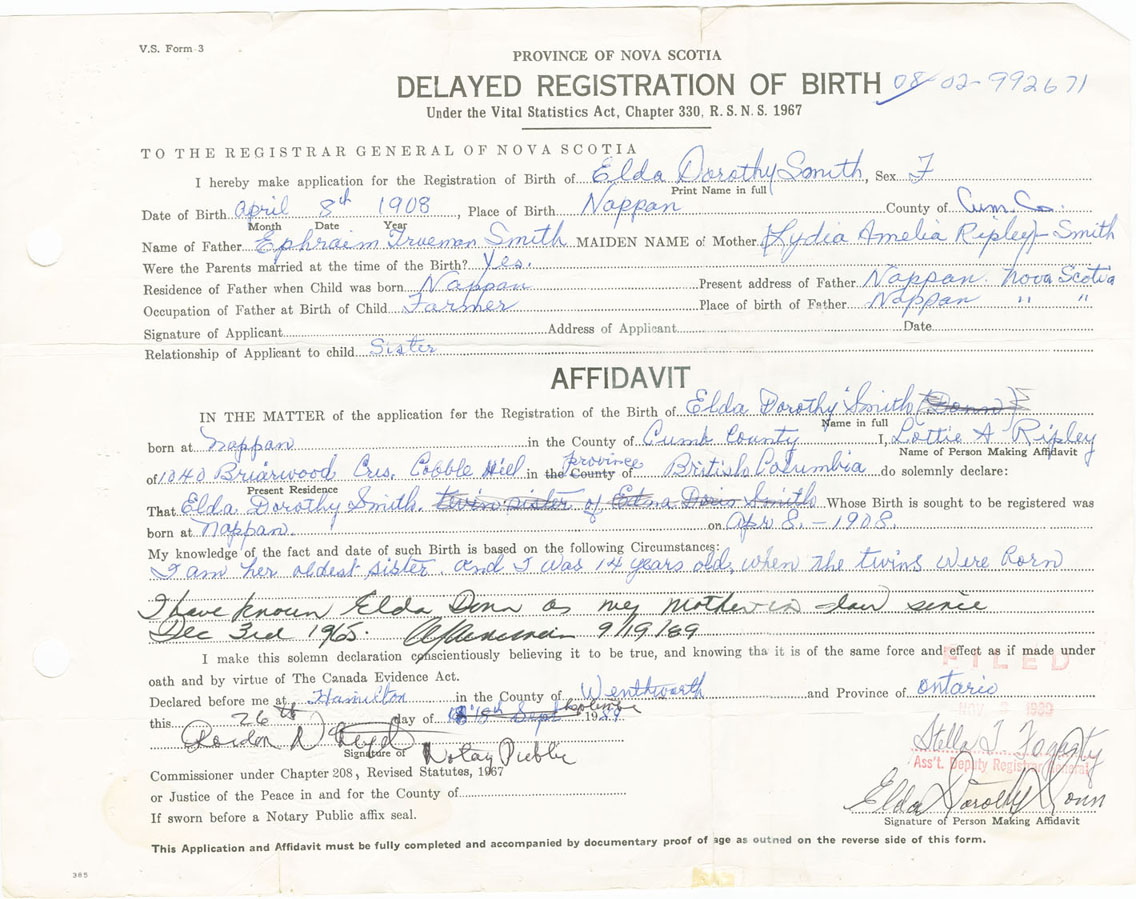 V.S. Form 3
PROVINCE OF NOVA SCOTIA
DELAYED REGISTRATION OF BIRTH 08 02-992671
Under the Vital Statistics Act, Chapter 330, R.S.N.S. 1967
TO THE REGISTRAR GENERAL OF NOVA SCOTIA
I hereby make application for the Registration of Birth of Elda Dorothy Smith, Sex F
Print Name in full
Date of Birth April 8th 1908, Place of Birth Nappan County of Cum. Co.
Month Date Year
Name of Father Ephraim Trueman Smith MAIDEN NAME of Mother (Lydia Amelia Ripley) Smith
Were the Parents married at the time of the Birth? Yes.
Residence of Father when Child was born Nappan Present address of Father Nappan. Nova Scotia
Occupation of Father at Birth of Child Farmer Place of birth of Father Nappan " "
Signature of Applicant Address of Applicant Date
Relationship of Applicant to child Sister
AFFIDAVIT
IN THE MATTER of the application for the Registration of the Birth of Elda Dorothy Smith (Donn)
Name in full
born at Nappan in the County of Cumb County I, Lottie A Ripley
Name of Person Making Affidavit
of 1040 Briarwood Cres. Cobble Hill in the County of province British Columbia do solemnly declare:
Present Residence
That Elda Dorothy Smith. twin sister of Edna Doris Smith Whose Birth is sought to be registered was
born at Nappan. on Apr 8. - 1908.
My knowledge of the fact and date of such Birth is based on the following Circumstances:
I am her oldest sister. and I was 14 years old, when the twins were born
I have known Elda Donn as my mother in law since
Dec 3rd 1965. 9/19/89
I make this solemn declaration conscientiously believing it to be true, and knowing tha it is of the same force and effect as if made under
oath and by virtue of The Canada Evidence Act.
FILED
Declared before me at Hamilton in the County of Wenthworth and Province of Ontario
this 26th day of Sept 1989
Signature of Notary Public
Stella T. Fogarty
Ass't. Deputy Registrar General
Commissioner under Chapter 208, Revised Statutes, 1967
or Justice of the Peace in and for the County of
Elda Dorothy Donn
If sworn before a Notary Public affix seal.
Signature of Person Making Affidavit
This Application and Affidavit must be fully completed and accompanied by documentary proof of age as outned on the reverse side of this form.
365